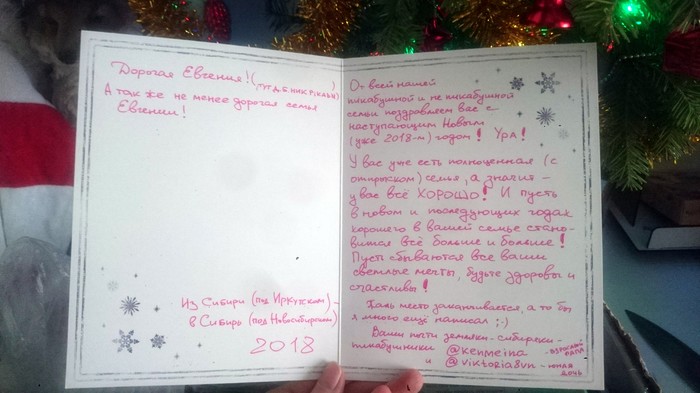 Дорогая Евгения! (тут д.б. ник Pikabu)
А так же не менее дорогая семья
Евгении!
Из Сибири (под Иркутском) –
в Сибирь (под Новосибирском)
2018
От всей нашей
пикабушной и не пикабушной
семьи поздравляем вас с
наступающим Новым
(уже 2018-м) годом! Ура!
У вас уже есть полноценная (с
отпрыском) семья, а значит –
у вас всё ХОРОШО! И пусть
в новом и последующих годах
хорошего в вашей семье стано-
вится всё больше и больше!
Пусть сбываются все ваши
светлые мечты, будьте здоровы и
счастливы!
Жаль место заканчивается, а то бы
я много ещё написал ;-)
Ваши почти земляки-сибиряки-
пикабушники @kenmeina -
и @viktoria8vn - юная
дочь